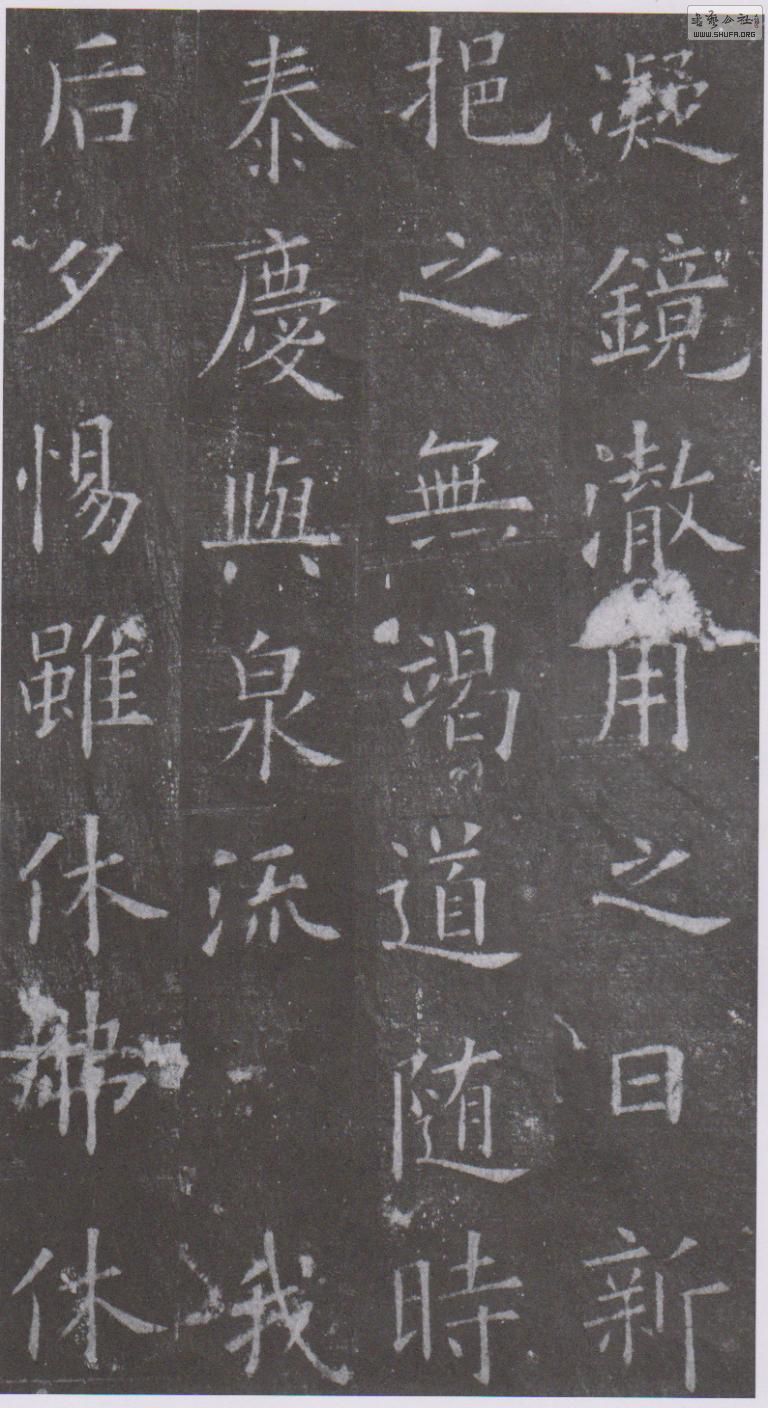 凝鏡澈用之日新
挹之無竭道随時
泰慶與泉流我
后夕惕雖休弗休
书艺公社
WWW.SHUFA.ORG